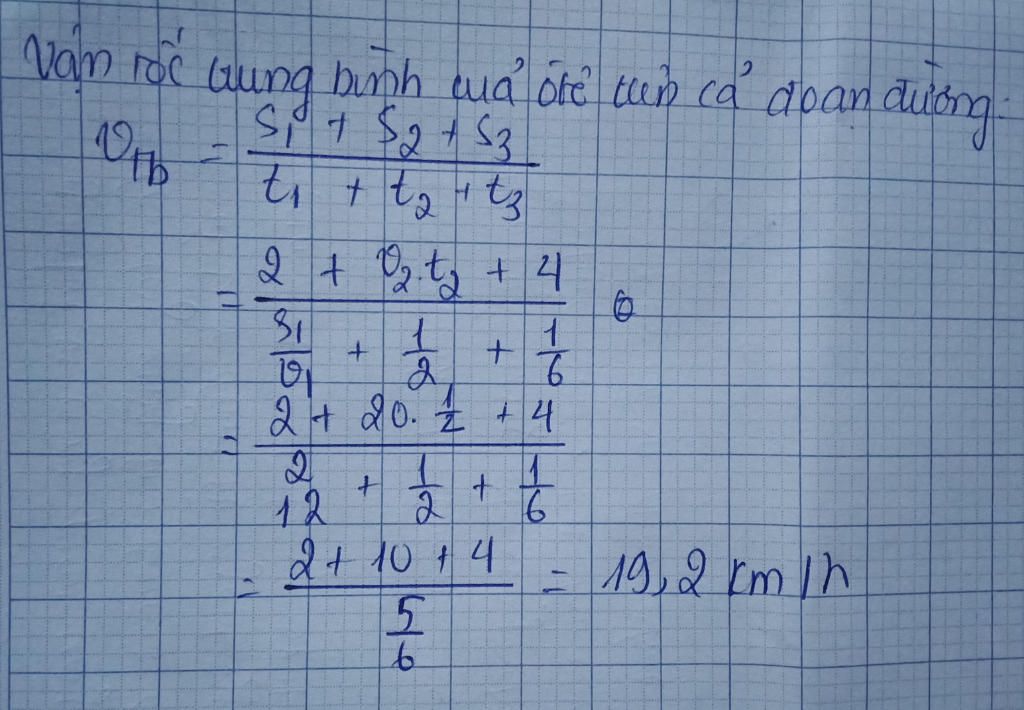 Vận tốc trung bình của ôtô trên cả đoạn đường:
v_tb = (S₁ + S₂ + S₃) / (t₁ + t₂ + t₃)
= (2 + v₂.t₂ + 4) / (S₁/v₁ + 1/2 + 1/6)
= (2 + 20. 1/2 + 4) / (2/12 + 1/2 + 1/6)
= (2 + 10 + 4) / (5/6) = 19,2 km/h